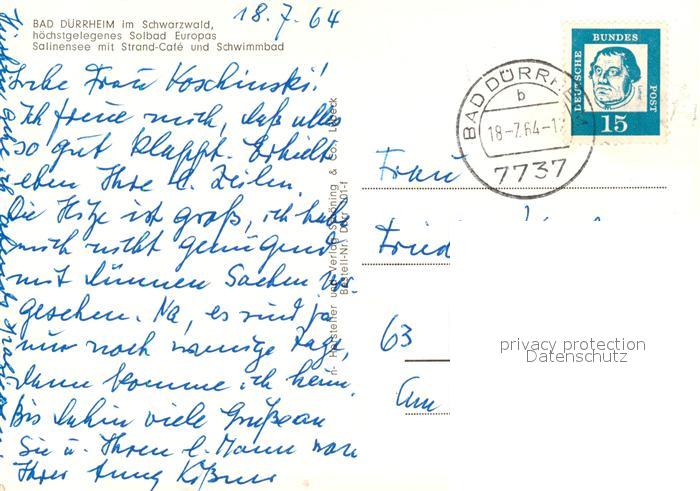 18.7.64
BAD DÜRRHEIM im Schwarzwald,
höchstgelegenes Solbad Europas
Salinensee mit Strand-Café und Schwimmbad
Liebe Frau Koschinski!
Ich freue mich, daß alles
so gut klappt. Erhielt
eben Ihre l. Zeilen.
Die Hitze ist groß, ich habe
mich nicht genügend
mit dünnen Sachen ver-
gesehen. Na, es sind ja
nur noch wenige Tage,
dann komme ich heim.
Bis dahin viele Grüße an
Sie u. Ihren l. Mann von
Ihrer Anny
Schöning & Co., Lübeck
Bestell-Nr.
DEUTSCHE
BUNDES
POST
15
BAD DÜRRHEIM
b
18-7.64-1
7737
Frau
Fried
63
Am
privacy protection
Datenschutz